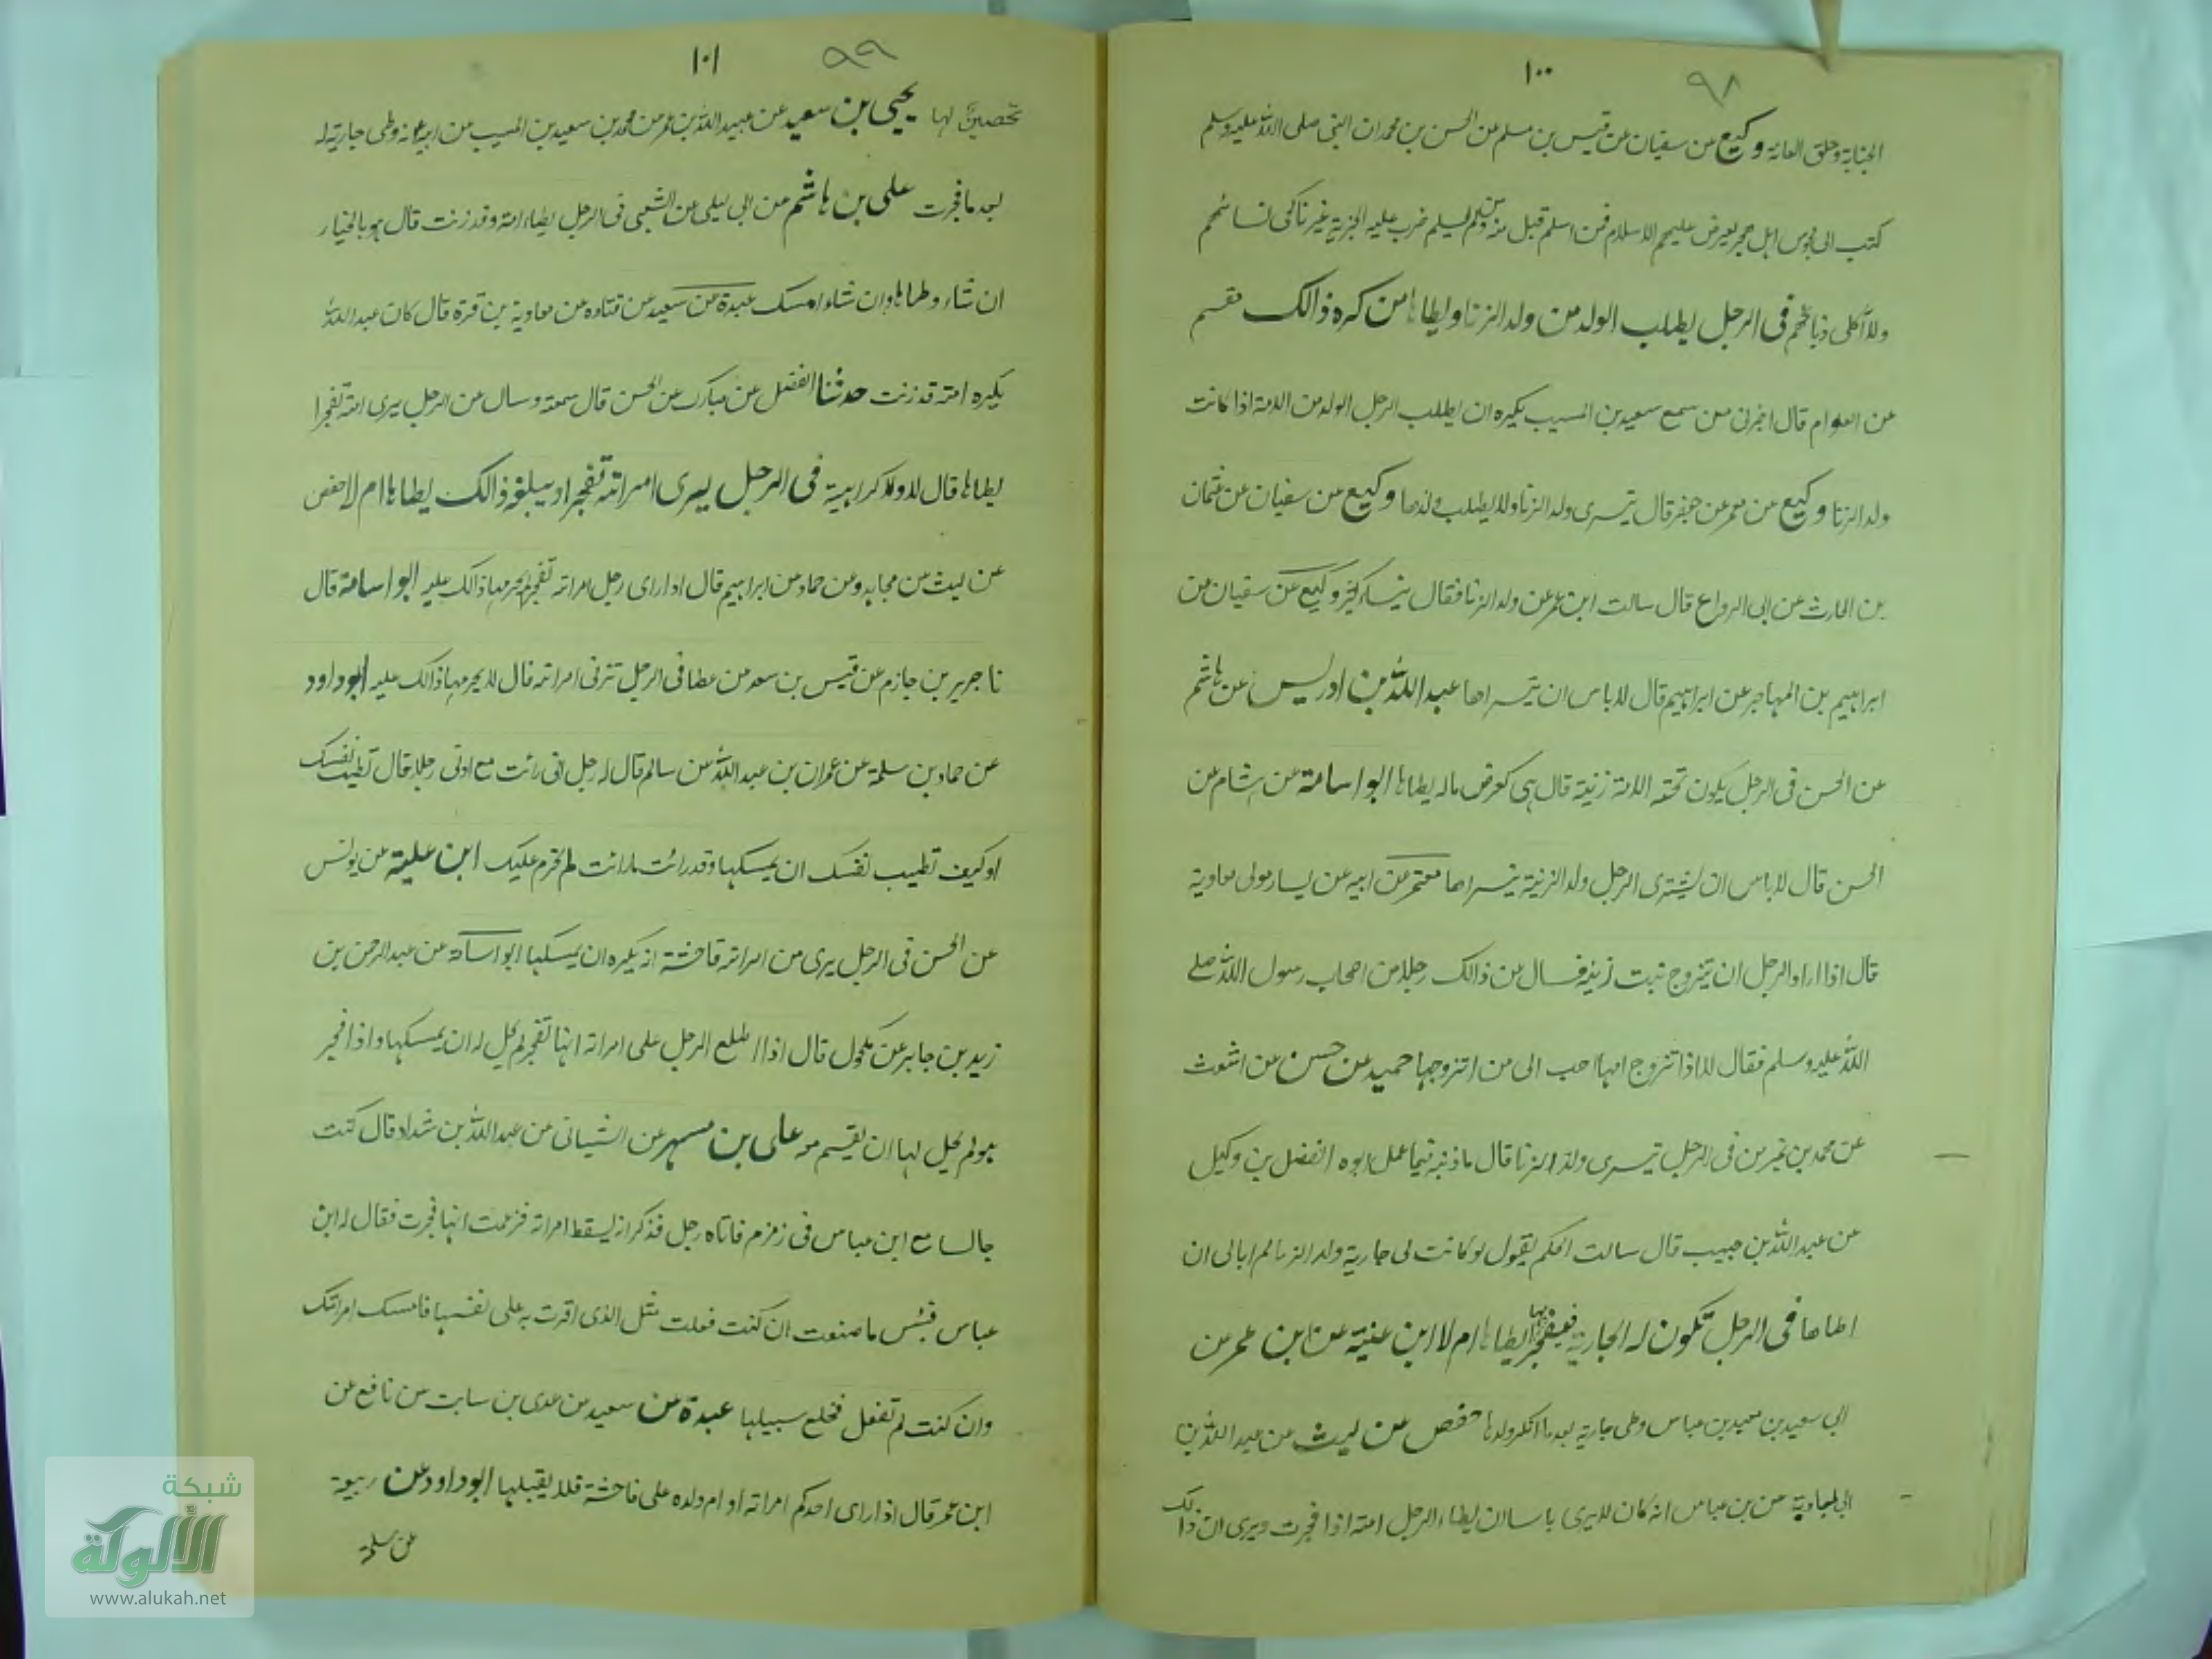 ١٠٠ ٩٨
الجنابة وحلق العانة وكيع عن سفيان عن قيس بن مسلم عن الحسن بن محمد ان النبى صلى الله عليه وسلم
كتب الى مجوس اهل هجر يعرض عليهم الاسلام فمن اسلم قبل منه ومن لم يسلم ضرب عليه الجزية غير ناكحى نسائهم
ولا آكلى ذبائحهم فى الرجل يطلب الولد من ولد الزنا ويطاها من كره ذالك
عن العوام قال اخبرنى من سمع سعيد بن المسيب يكره ان يطلب الرجل الولد من الامة اذا كانت
ولد الزنا وكيع عن معمر عن جعفر قال يتسرى ولد الزنا ولا يطلب ولدها وكيع عن سفيان عن عثمان
بن الحارث عن ابى الرواع قال سالت ابن عمر عن ولد الزنا فقال وكيع عن سفيان عن
ابراهيم بن المهاجر عن ابراهيم قال لا باس ان يتسراها عبد الله بن ادريس عن هاشم
عن الحسن فى الرجل يكون تحته الامة زنية قال هى كعرض ماله يطاها ابو اسامة عن هشام عن
الحسن قال لا باس ان يشترى الرجل ولد الزنية يتسراها معتمر عن ابيه عن يسار مولى معاوية
قال اذا اراد الرجل ان يتزوج بنت زنية فسال عن ذالك رجلا من اصحاب رسول الله صلى
الله عليه وسلم فقال لا اذا تتزوج امها احب الى من اتتزوجها حميد عن حسن عن اشعث
عن محمد بن سيرين فى الرجل يتسرى ولد الزنا قال ما ذنبه فيما عمل ابوه الفضل بن وكيل
عن عبد الله بن حبيب قال سالت الحكم يقول لو كانت لى جارية ولد الزنا لم ابالى ان
اطاها فى الرجل تكون له الجارية ايطاها ام لا ابن عينية عن ابن عمر عن
ابى سعيد بن عباس وطى جارية بعد ما انكر ولدها حفص عن ليث عن عبد الله بن
عن بن عباس انه كان لا يرى باسا ان يطاء الرجل امته اذا فجرت ويرى ان ذالك
١٠١ ٩٩
تحصين لها يحيى بن سعيد عن عبيد الله بن عمر عن محمد بن سعيد بن المسيب عن ابيه انه وطى جارية له
بعد ما فجرت على بن هاشم عن ابى ليلى عن الشعبى فى الرجل يطاء امته وقد زنت قال هو بالخيار
ان شاء وطاها وان شاء امسك عبدة عن سعيد عن قتاده عن معاوية بن قرة قال كان عبد الله
يكره امته قد زنت حدثنا الفضل عن مبارك عن الحسن قال سمعته وسال عن الرجل يرى امته تفجر ا
يطاها قال لا ولا كراهية فى الرجل يرى امراته تفجر او يبلغه ذالك يطاها ام لا حفص
عن ليث عن مجاهد وعن حماد عن ابراهيم قال اذا راى رجل امراته تفجر لم يحرمها ذالك عليه ابو اسامة قال
نا جرير بن حازم عن قيس بن سعد عن عطا فى الرجل تزنى امراته قال لا يحرمها ذالك عليه ابو داود
عن حماد بن سلمة عن عمران بن عبد الله عن سالم قال له رجل انى رائت مع رجلا قال تطيب نفسك
او كيف تطيب نفسك ان يمسكها وقد رائت ما رائت لم تحرم عليك ابن علية عن يونس
عن الحسن فى الرجل يرى من امراته فاحشة انه يكره ان يمسكها ابو اسامة عن عبد الرحمن بن
زيد بن جابر عن مكحول قال اذا اطلع الرجل على امراته انها تفجر لم يحل له ان يمسكها واذا فجر
هو لم يحل لها ان يقيم معه على بن مسهر عن الشيبانى عن عبد الله بن شداد قال كنت
جالسا مع ابن عباس فى زمزم فاتاه رجل فذكر انه يسقط امراته فزعمت انها فجرت فقال له ابن
عباس فبئس ما صنعت ان كنت فعلت مثل الذى اقرت به على نفسها فامسك امراتك
وان كنت لم تفعل فخلع سبيلها عبدة عن سعيد عن عدى بن سابت عن نافع عن
ابن عمر قال اذا راى احدكم امراته او ام ولده على فاحشة فلا يقبلها ابو داود عن ربيعة
عن سلمة
شبكة
الألوكة
www.alukah.net